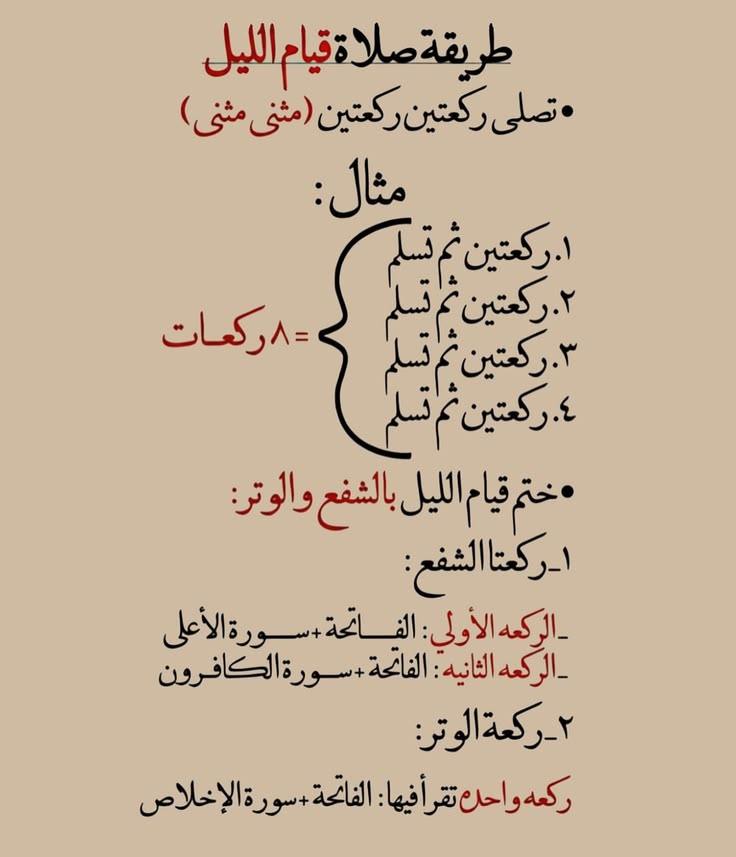 طريقة صلاة قيام الليل
•تصلى ركعتين ركعتين (مثنى مثنى)
مثال:
١.ركعتين ثم تسلم
٢.ركعتين ثم تسلم
٣.ركعتين ثم تسلم
٤.ركعتين ثم تسلم
=٨ ركعات
•ختم قيام الليل بالشفع والوتر:
١_ركعتا الشفع:
_الركعه الأولي: الفاتحة+سورة الأعلى
_الركعه الثانيه: الفاتحة+سورة الكافرون
٢_ركعة الوتر:
ركعه واحده تقرأ فيها: الفاتحة+سورة الإخلاص